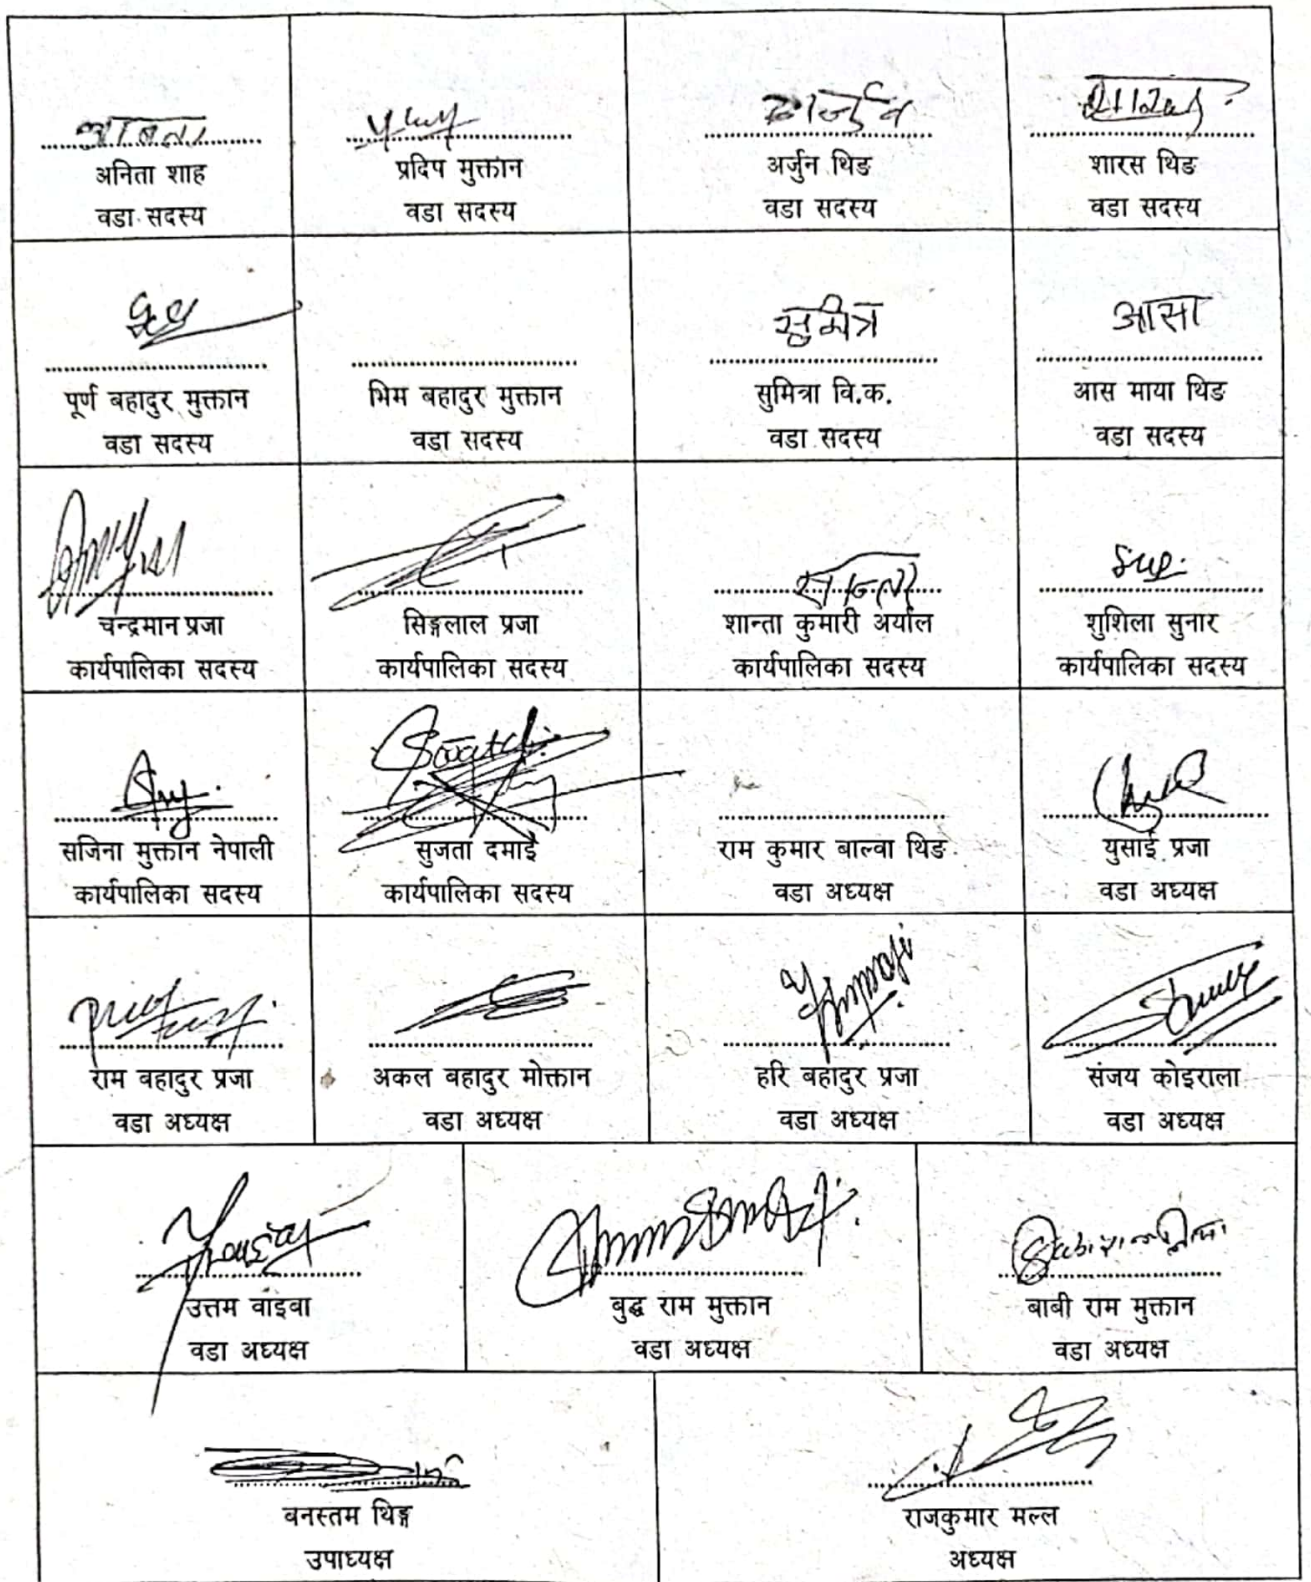 अनिता शाह
वडा सदस्य
प्रदिप मुक्तान
वडा सदस्य
अर्जुन
अर्जुन थिङ
वडा सदस्य
शारस थिङ
वडा सदस्य
पूर्ण बहादुर मुक्तान
वडा सदस्य
भिम बहादुर मुक्तान
वडा सदस्य
सुमित्र
सुमित्रा वि.क.
वडा सदस्य
आसा
आस माया थिङ
वडा सदस्य
चन्द्रमान प्रजा
कार्यपालिका सदस्य
सिङ्गलाल प्रजा
कार्यपालिका सदस्य
शान्ता कुमारी अर्याल
कार्यपालिका सदस्य
शुशिला सुनार
कार्यपालिका सदस्य
सजिना मुक्तान नेपाली
कार्यपालिका सदस्य
सुजता दमाई
कार्यपालिका सदस्य
राम कुमार बाल्वा थिङ
वडा अध्यक्ष
युसाई प्रजा
वडा अध्यक्ष
राम वहादुर प्रजा
वडा अध्यक्ष
अकल वहादुर मोक्तान
वडा अध्यक्ष
हरि बहादुर प्रजा
वडा अध्यक्ष
संजय कोइराला
वडा अध्यक्ष
उत्तम वाइबा
वडा अध्यक्ष
बुद्ध राम मुक्तान
वडा अध्यक्ष
बाबी राम मुक्तान
वडा अध्यक्ष
वनस्तम थिङ्ग
उपाध्यक्ष
राजकुमार मल्ल
अध्यक्ष